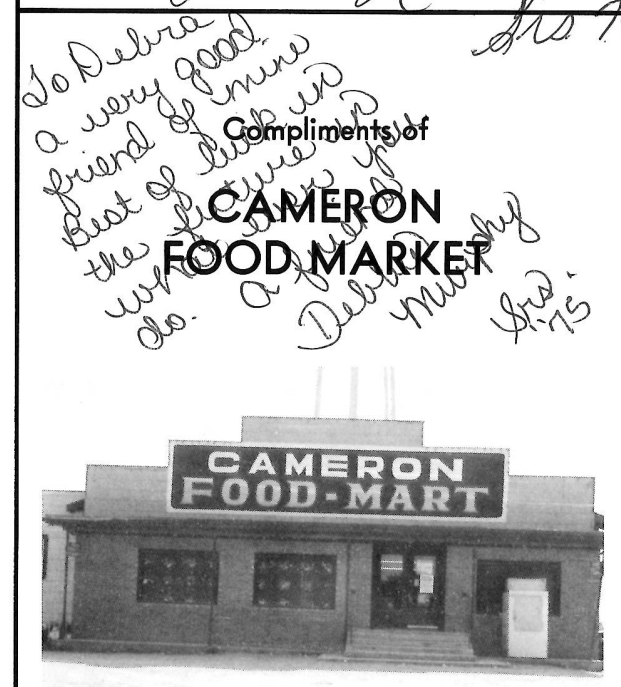 Srs
To Debra
a very good
friend of mine
Best of luck in
the future in
what ever you
do. a friend
Debbie
Murphy
Srs.
'75
Compliments of
CAMERON
FOOD MARKET
CAMERON
FOOD-MART